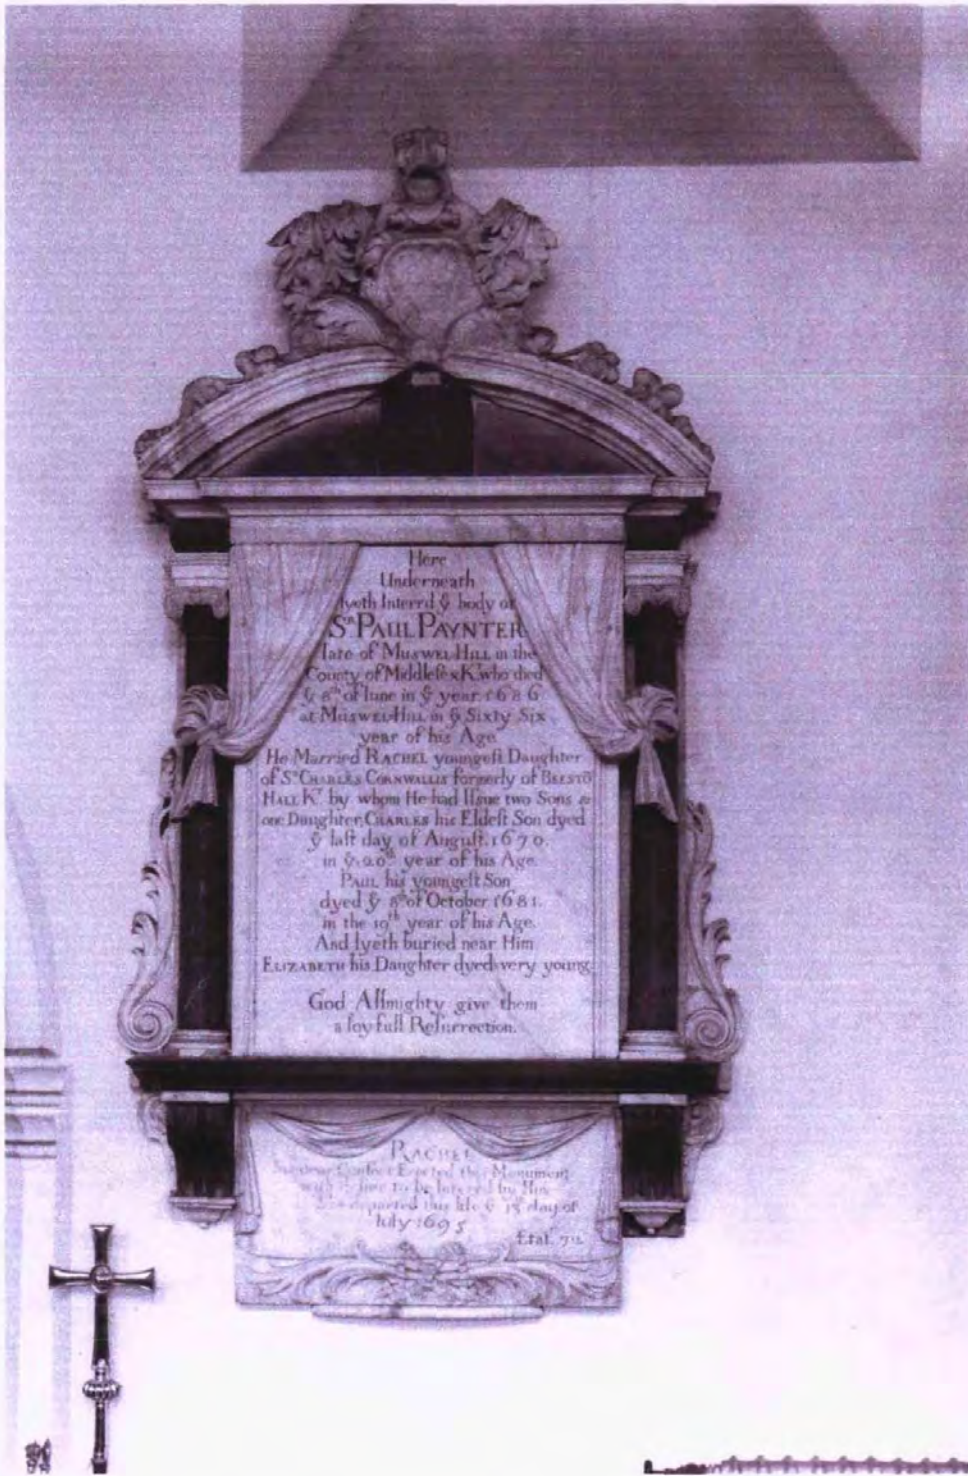 Here
Underneath
lyeth Interrd ẙ body of
Sᴿ PAUL PAYNTER
late of MUSWEL HILL in the
County of Middlesex Kᵗ who died
ẙ 8ᵗʰ of Iune in ẙ year 1686
at MUSWEL-HILL in ẙ Sixty Six
year of his Age
He Married RACHEL youngest Daughter
of Sʳ CHARLES CORNWALLIS formerly of BEESTŌ
HALL Kᵗ by whom He had Issue two Sons &
one Daughter, CHARLES his Eldest Son dyed
ẙ last day of August. 1670.
in ẙ 20ᵗʰ year of his Age.
PAUL his youngest Son
dyed ẙ 8ᵗʰ of October 1681.
in the 19ᵗʰ year of his Age.
And lyeth buried near Him
ELIZABETH his Daughter dyed very young.
God Allmighty give them
a Ioyfull Resurrection.
RACHEL
Consort Erected this Monument
to be Interred by Him
departed this life ẙ day of
Iuly 1695
Etat. 70.